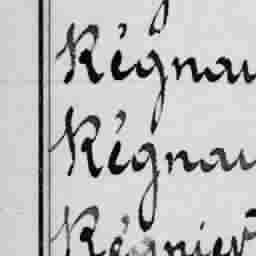 Régnau
Régnau
Régnier